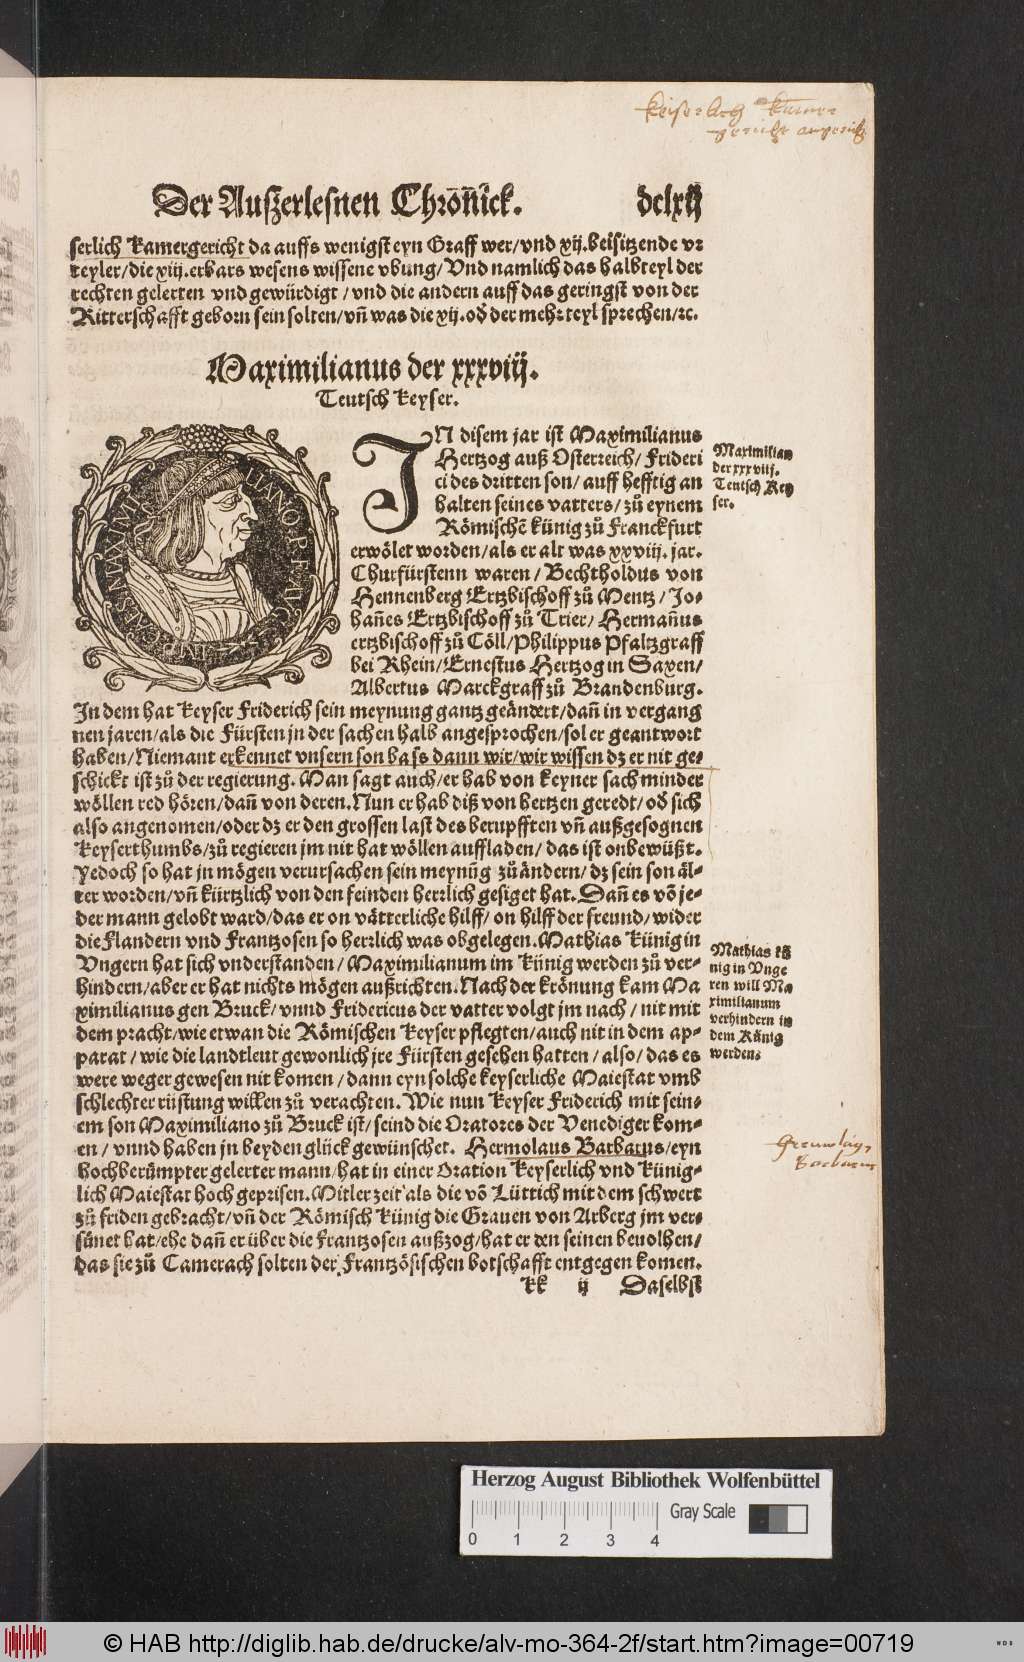 Keiserlich Kamer
gericht angericht
Der Auszerlesnen Chroñick. dclxij
serlich Kamergericht da auffs wenigst eyn Graff wer/vnd xij.beisitzende vr
teyler/die xiij.erbars wesens wissene vbung/Vnd namlich das halbteyl der
rechten gelerten vnd gewürdigt/vnd die andern auff das geringst von der
Ritterschafft geborn sein solten/vñ was die xij.od̕ der mehrteyl sprechen/ꝛc.
Maximilianus der xxxviij.
Teutsch Keyser.
IN disem jar ist Maximilianus
Hertzog auß Osterreich/Frideri
ci des dritten son/auff hefftig an
halten seines vatters/zů eynem
Römischē künig zů Franckfurt
erwölet worden/als er alt was xxviij.jar.
Churfürstenn waren/Bechtholdus von
Hennenberg Ertzbischoff zů Mentz/Jo-
hañes Ertzbischoff zů Trier/Hermañus
ertzbischoff zů Cöll/Philippus Pfaltzgraff
bei Rhein/Ernestus Hertzog in Saxen/
Albertus Marckgraff zů Brandenburg.
In dem hat Keyser Friderich sein meynung gantz geändert/dañ in vergang
nen jaren/als die Fürsten jn der sachen halb angesprochen/sol er geantwort
haben/Niemant erkennet vnsern son bass dann wir/wir wissen dz er nit ge-
schickt ist zů der regierung.Man sagt auch/er hab von keyner sach minder
wöllen red hören/dañ von deren.Nun er hab diß von hertzen geredt/od̕ sich
also angenomen/oder dz er den grossen last des berupfften vñ außgesognen
Keyserthumbs/zů regieren jm nit hat wöllen auffladen/das ist onbewüßt.
Yedoch so hat jn mögen verursachen sein meynūg zů ändern/dz sein son äl-
ter worden/vñ kürtzlich von den feinden herrlich gesiget hat.Dañ es vō je-
der mann gelobt ward/das er on vätterliche hilff/on hilff der freund/wider
die Flandern vnd Frantzosen so herrlich was obgelegen.Mathias Künig in
Vngern hat sich vnderstanden/Maximilianum im Künig werden zů ver-
hindern/aber er hat nichts mögen außrichten.Nach der krönung kam Ma
ximilianus gen Bruck/vnnd Fridericus der vatter volgt jm nach/nit mit
dem pracht/wie etwan die Römischen Keyser pflegten/auch nit in dem ap-
parat/wie die landtleut gewonlich jre Fürsten gesehen hatten/also/das es
were weger gewesen nit komen/dann eyn solche keyserliche Maiestat vmb
schlechter rüstung willen zů verachten.Wie nun Keyser Friderich mit sein-
em son Maximiliano zů Bruck ist/seind die Oratores der Venediger kom-
en/vnnd haben jn beyden glück gewünschet. Hermolaus Barbarus/eyn
hochberümpter gelerter mann/hat in einer Oration Keyserlich vnd Künig-
lich Maiestat hoch geprisen.Mitler zeit als die vō Lüttich mit dem schwert
zů friden gebracht/vñ der Römisch Künig die Grauen von Arberg jm ver-
sünet hat/ehe dañ er über die Frantzosen außzog/hat er den seinen beuolhen/
das sie zů Camerach solten der Frantzösischen botschafft entgegen komen.
kk ij Daselbst
Maximilian
der xxxviij.
Teutsch Key
ser.
Mathias kü
nig in Vnge
ren will Ma
ximilianum
verhindern in
dem Künig
werden.
Barbarus
Herzog August Bibliothek Wolfenbüttel
Gray Scale
0 1 2 3 4
© HAB http://diglib.hab.de/drucke/alv-mo-364-2f/start.htm?image=00719